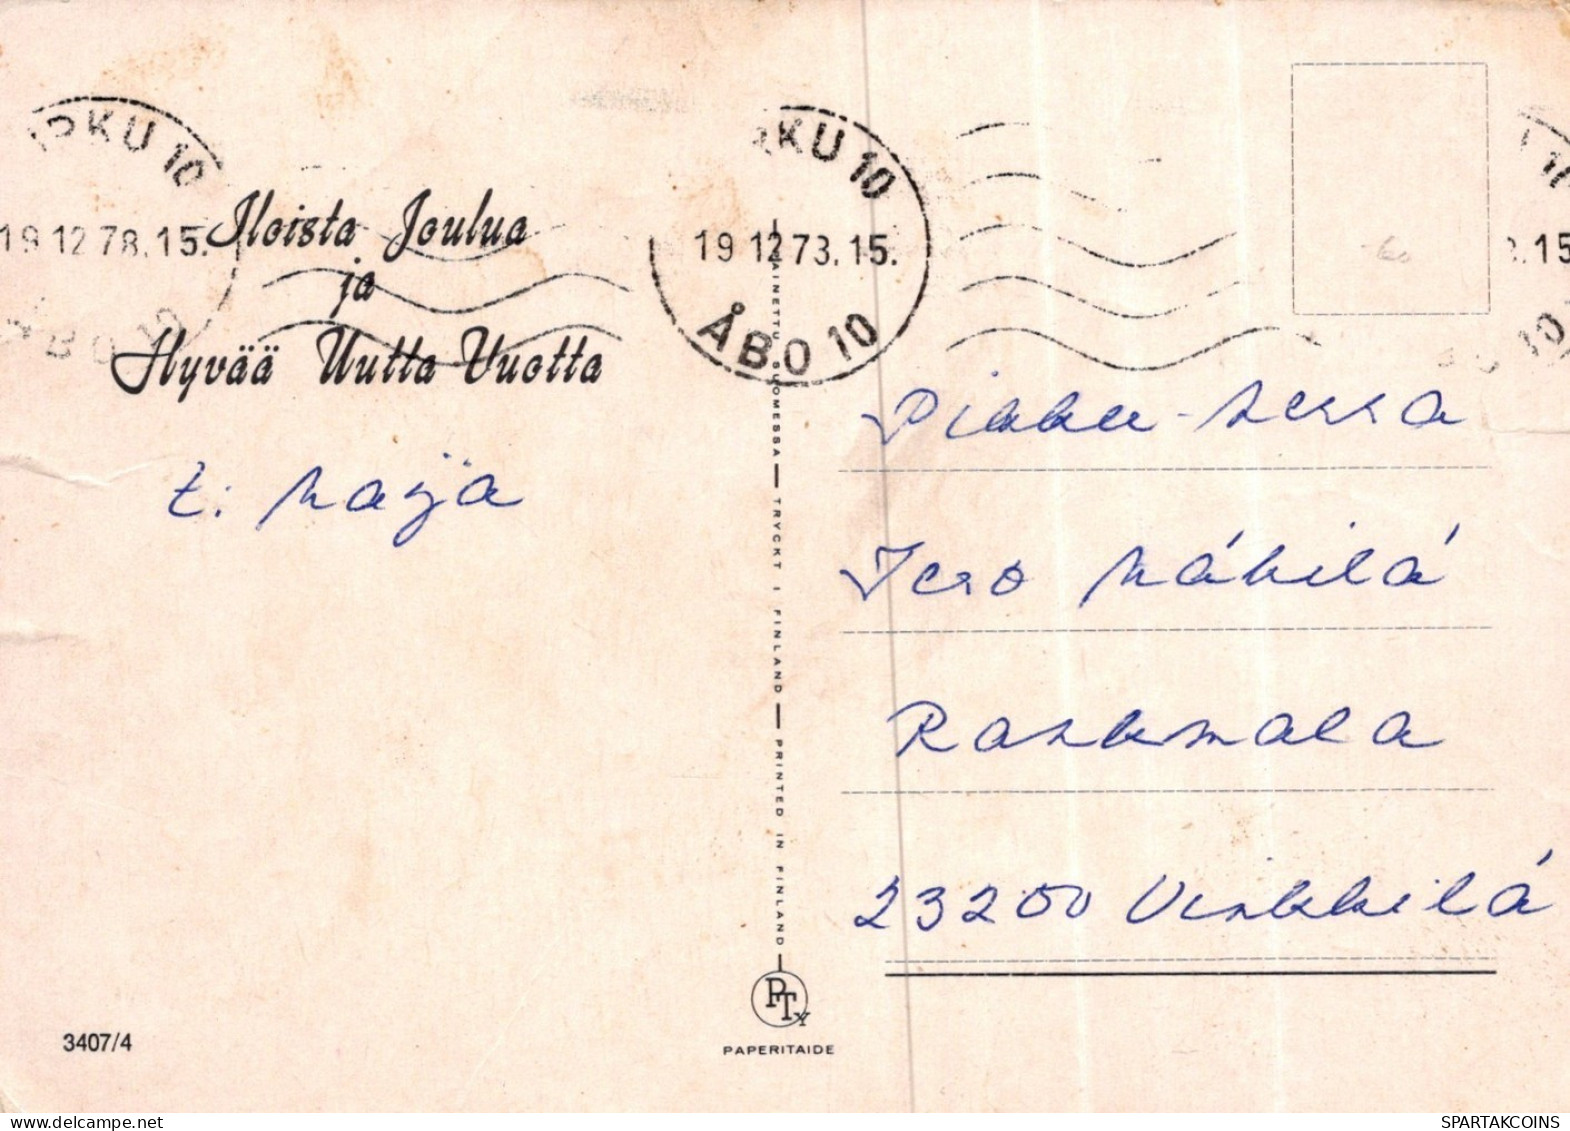 RKU 10
19 12 78. 15.
ÅBO 10
Iloista Joulua
ja
Hyvää Uutta Vuotta
t. Maija
RKU 10
19 12 73. 15.
ÅBO 10
. 15
10
60
PAINETTU SUOMESSA — TRYCKT I FINLAND — PRINTED IN FINLAND
Pikku-serra
Jero Mäkilä
Raskmala
23200 Vinkkilä
PTy
PAPERITAIDE
3407/4
SPARTAKCOINS